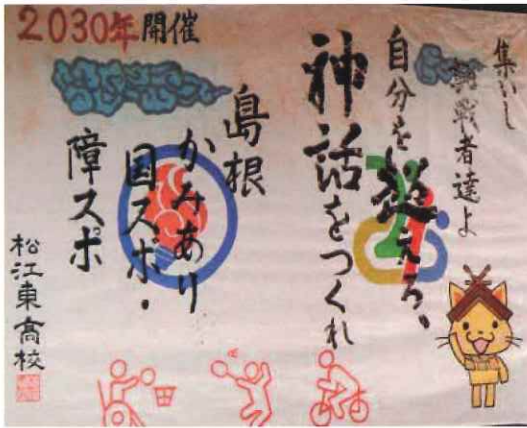 2030年開催
集いし
挑戦者達よ
自分を超えろ、
神話をつくれ
島根
かみあり
国スポ・
障スポ
松江東高校